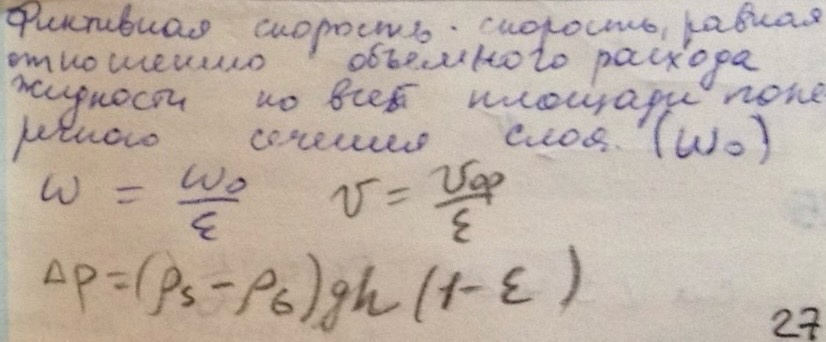 Фиктивная скорость - скорость, равная
отношению объемного расхода
жидкости ко всей площади попе
речного сечения слоя. (ω₀)
ω = ω₀/ε v = vф/ε
Δp = (ρs - ρб)gh (1 - ε)
27